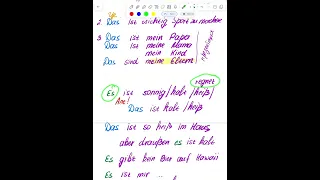 2. Das ist wichtig Sport zu machen
3. Das ist mein Papa
Das ist meine Mama
mein Kind
Das sind meine Eltern
regnet
Es ist sonnig/kalt/heiß
Das ist kalt/heiß
Das ist so heiß im Haus,
aber draußen es ist kalt
Es gibt kein Bier auf Hawaii
Es ist mir